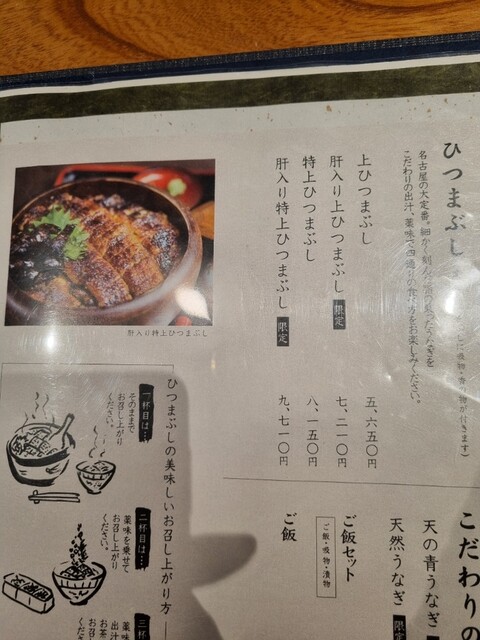 ひつまぶし
吸物・香の物が付きます)
名古屋の大定番。細かく刻んだ脂の乗ったうなぎを
こだわりの出汁、薬味で四通りの食べ方をお楽しみください。
上ひつまぶし 五、六五〇円
肝入り上ひつまぶし 限定 七、二一〇円
特上ひつまぶし 八、一五〇円
肝入り特上ひつまぶし 限定 九、七一〇円
肝入り特上ひつまぶし
こだわりの
天の青うなぎ
天然うなぎ 限
ご飯セット
ご飯・吸物・漬物
ご飯
ひつまぶしの美味しいお召し上がり方
一杯目は…
そのままで
お召し上がり
ください。
二杯目は…
薬味を乗せて
お召し上がり
ください。
三杯
薬味
出汁
お茶
お召し
くださ